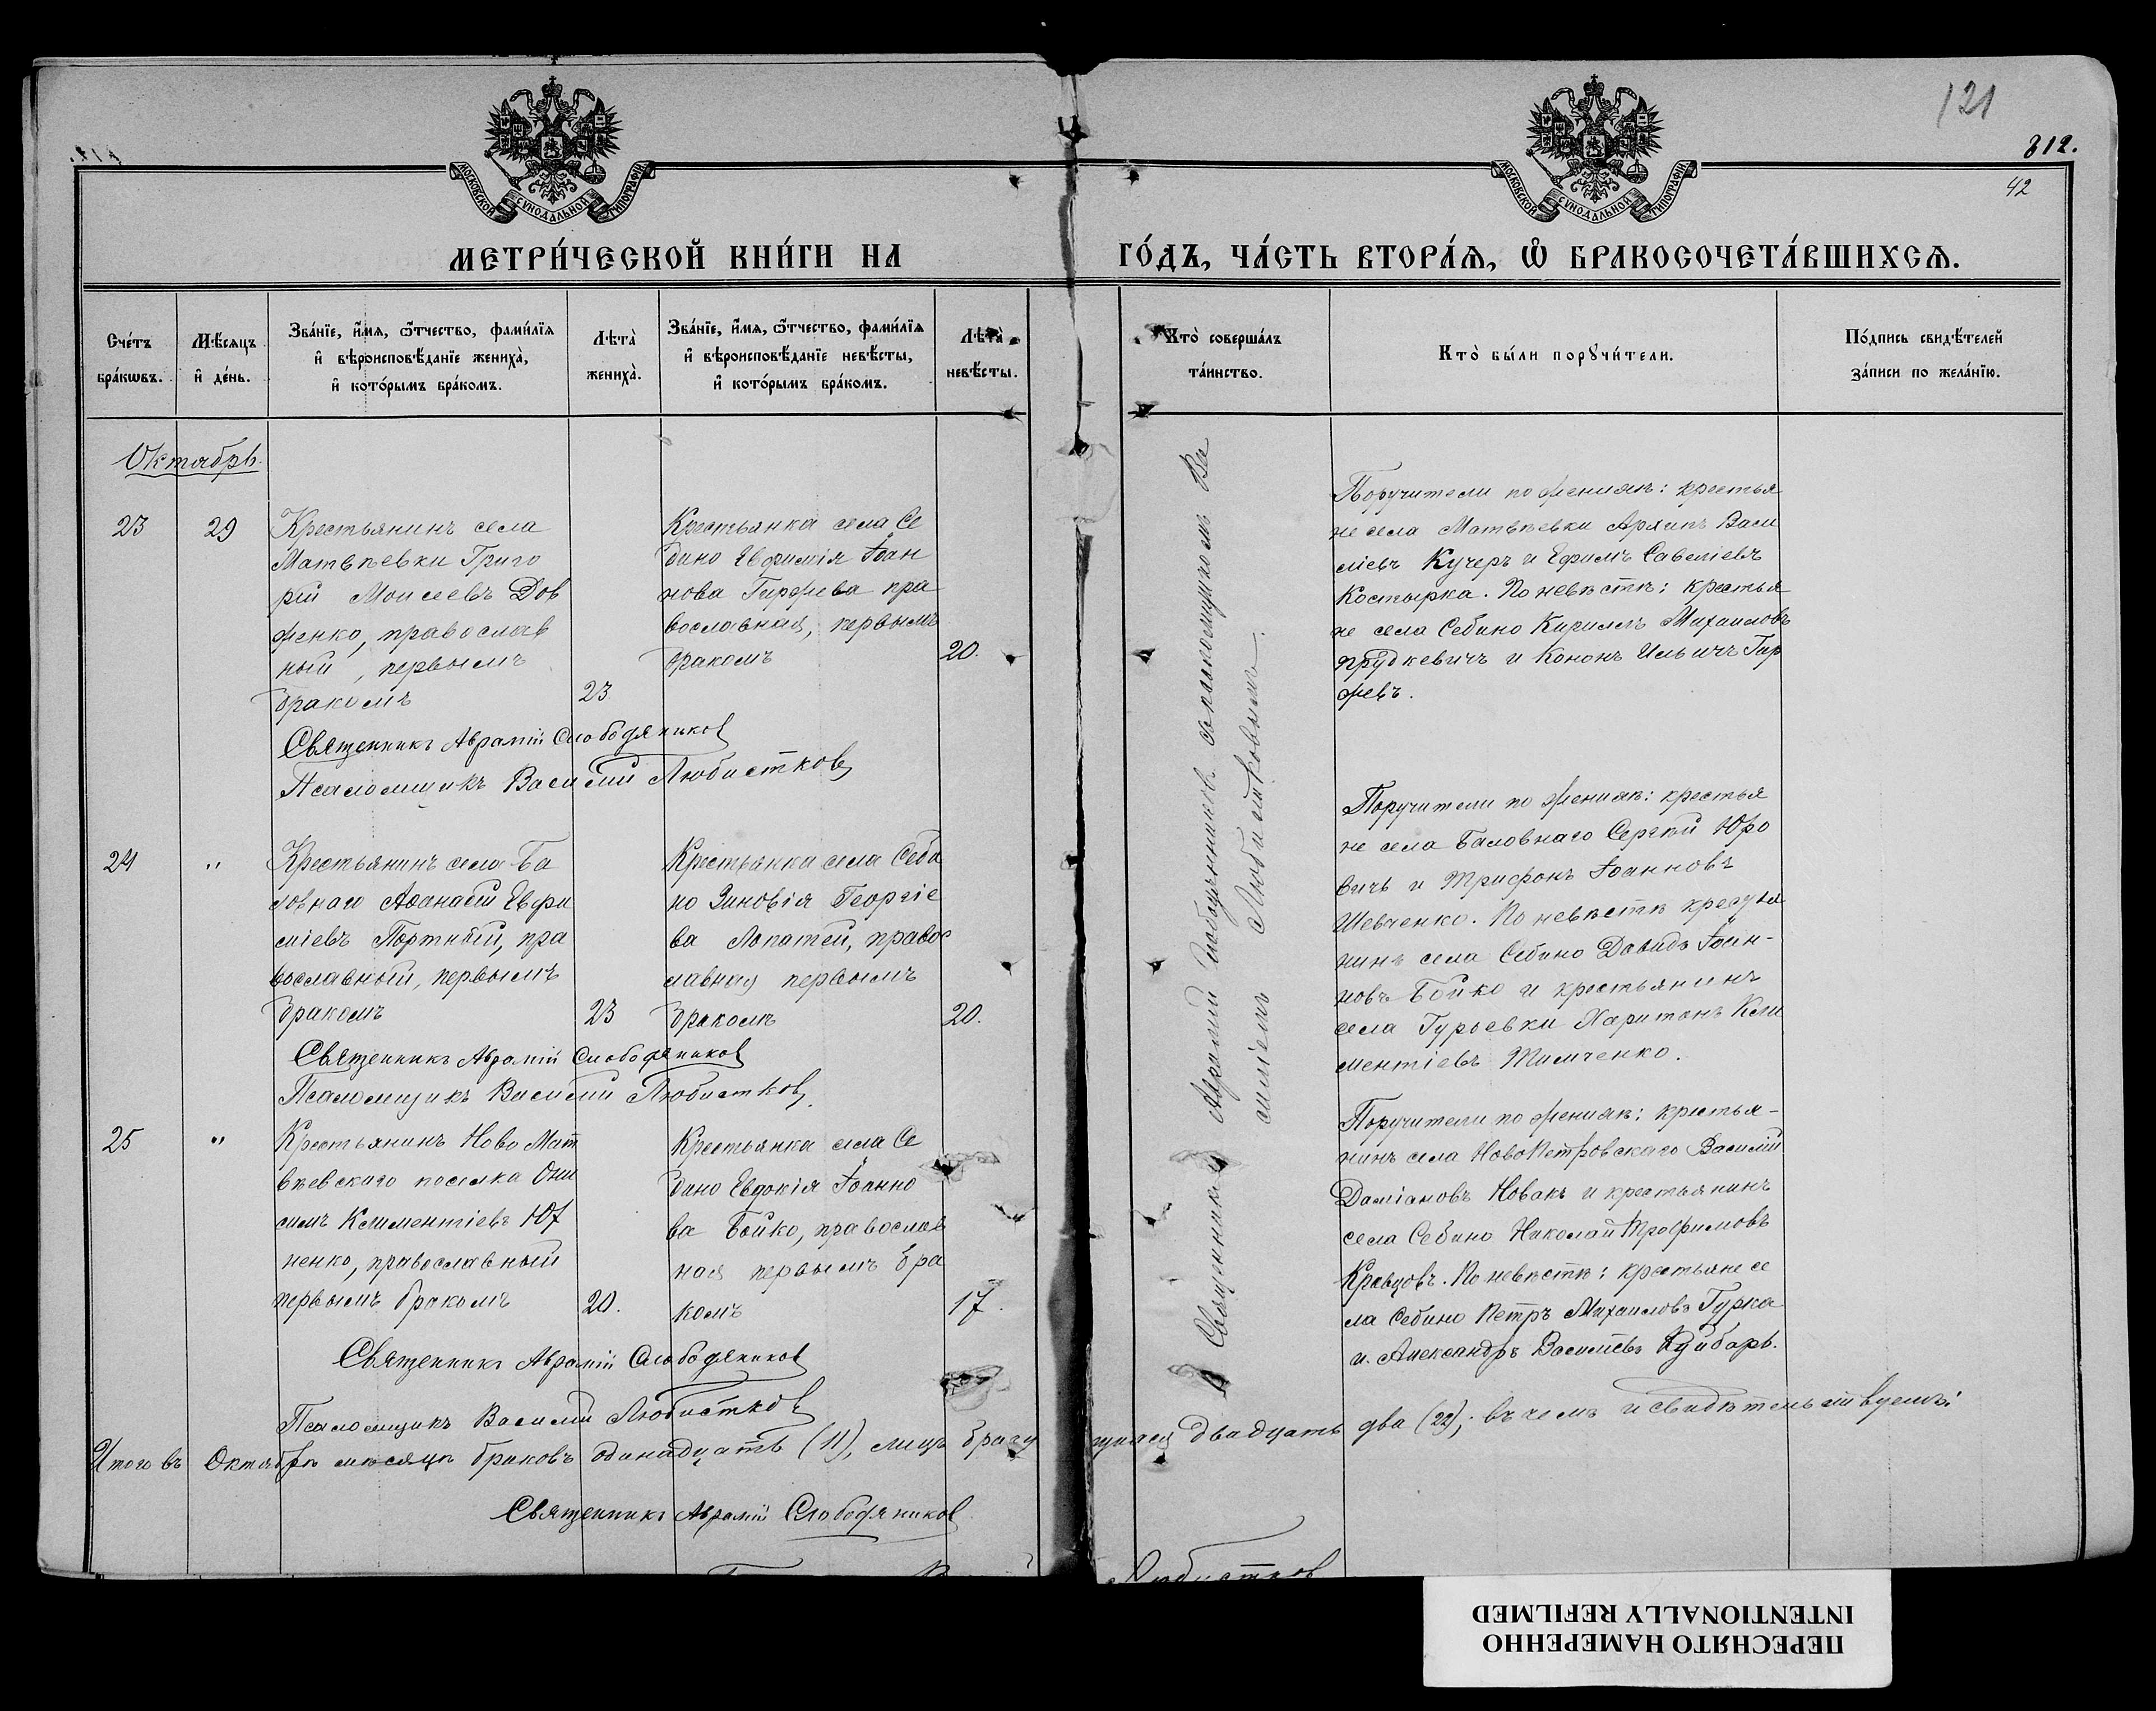 121
312.
42
МОСКОВСКОЙ СѴНОДАЛЬНОЙ ТИПОГРАФІИ
МОСКОВСКОЙ СѴНОДАЛЬНОЙ ТИПОГРАФІИ
МЕТРИ́ЧЕСКОЙ КНИ́ГИ НА ГО́ДЪ, ЧА́СТЬ ВТОРА́Ѧ, Ѽ БРАКОСОЧЕТА́ВШИХСѦ.
Сче́тъ
бра́кѡвъ.
Мѣ́сяцъ
и҆ де́нь.
Зва́нїе, и҆́мѧ, ѻ҆́тчество, фами́лїѧ
и҆ вѣроисповѣ́данїе жениха̀,
и҆ кото́рымъ бра́комъ.
Лѣта̀
жениха̀.
Зва́нїе, и҆́мѧ, ѻ҆́тчество, фами́лїѧ
и҆ вѣроисповѣ́данїе невѣ́сты,
и҆ кото́рымъ бра́комъ.
Лѣта̀
невѣ́сты.
Кто̀ соверша́лъ
та́инство.
Кто̀ бы́ли порꙋчи́тели.
По́дпись свидѣ́телей
за́писи по жела́нїю.
Октябрь.
23
29
Крестьянинъ села
Матвѣевки Григо
рій Моисеевъ Дов
женко, православ
ный, первымъ
бракомъ
23
Крестьянка села Се
бино Евфимія Іоан
нова Гиржева пра
вославная, первымъ
бракомъ
20.
Поручители по женихѣ: крестья
не села Матвѣевки Архипъ Васи
ліевъ Кучеръ и Ефимъ Савеліевъ
Костырка. По невѣстѣ: крестья
не села Себино Кириллъ Михаиловъ
Прудкевичъ и Кононъ Ильичъ Гир
жевъ.
Священникъ Аврамій Слободяниковъ
Псаломщикъ Василій Любистковъ
24
"
Крестьянинъ села Ба
ловнаго Аѳанасій Евфи
міевъ Портный, пра
вославный, первымъ
бракомъ
23
Крестьянка села Себи
но Зиновія Георгіе
ва Лопатей, правос
лавная первымъ
бракомъ
20.
Поручители по женихѣ: крестья
не села Баловнаго Сергѣй Юро
вичъ и Трифонъ Іоанновъ
Шевченко. По невѣстѣ крестья
нинъ села Себино Давидъ Іоан-
новъ Бойко и крестьянинъ
села Гурьевки Харитонъ Кли
ментіевъ Тимченко.
Священникъ Аврамій Слободяниковъ
Псаломщикъ Василій Любистковъ
25
"
Крестьянинъ Ново Мат
вѣевскаго поселка Они
симъ Климентіевъ Юх
ненко, православный
первымъ бракомъ
20.
Крестьянка села Се
бино Евдокія Іоанно
ва Бойко, православ
ная первымъ бра
комъ
17.
Поручители по женихѣ: крестья-
нинъ села НовоПетровскаго Василій
Даміановъ Новакъ и крестьянинъ
села Себино Николай Трофимовъ
Кравцовъ. По невѣстѣ: крестьяне се
ла Себино Петръ Михаиловъ Гурка
и Александръ Василіевъ Цибарь.
Священникъ Аврамій Слободяниковъ
Псаломщикъ Василій Любистковъ
Священникъ Аврамій Слободяниковъ съ псаломщикомъ Ва
силіемъ Любистковымъ.
Итого въ Октябрѣ мѣсяцѣ браковъ одинадцать (11), лицъ двадцать два (22); въ чемъ и свидѣтельствуемъ:
Священникъ Аврамій Слободяниковъ
Любистков
ПЕРЕСНЯТО НАМЕРЕННО
INTENTIONALLY REFILMED